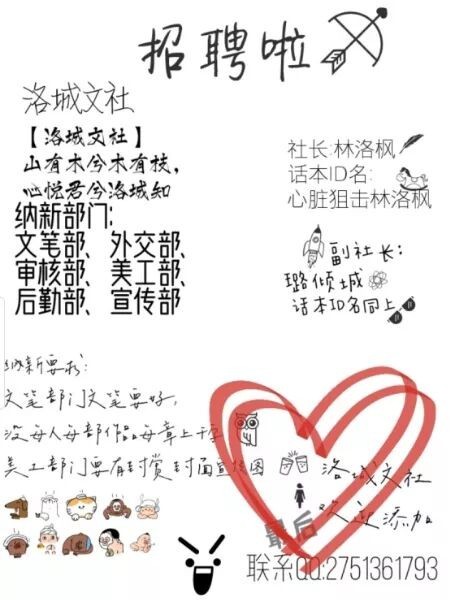 招聘啦
洛城文社
【洛城文社】
山有木兮木有枝,
心悦君兮洛城知
纳新部门:
文笔部、外交部、
审核部、美工部、
后勤部、宣传部
社长:林洛枫
话本ID名:
心脏狙击林洛枫
副社长:
璐倾城
话本ID名同上
纳新要求:
文笔部门文笔要好,
没每人每部作品每章上千字
美工部门要有封赏封面宣传图
洛城文社
欢迎添加
最后
联系QQ:2751361793